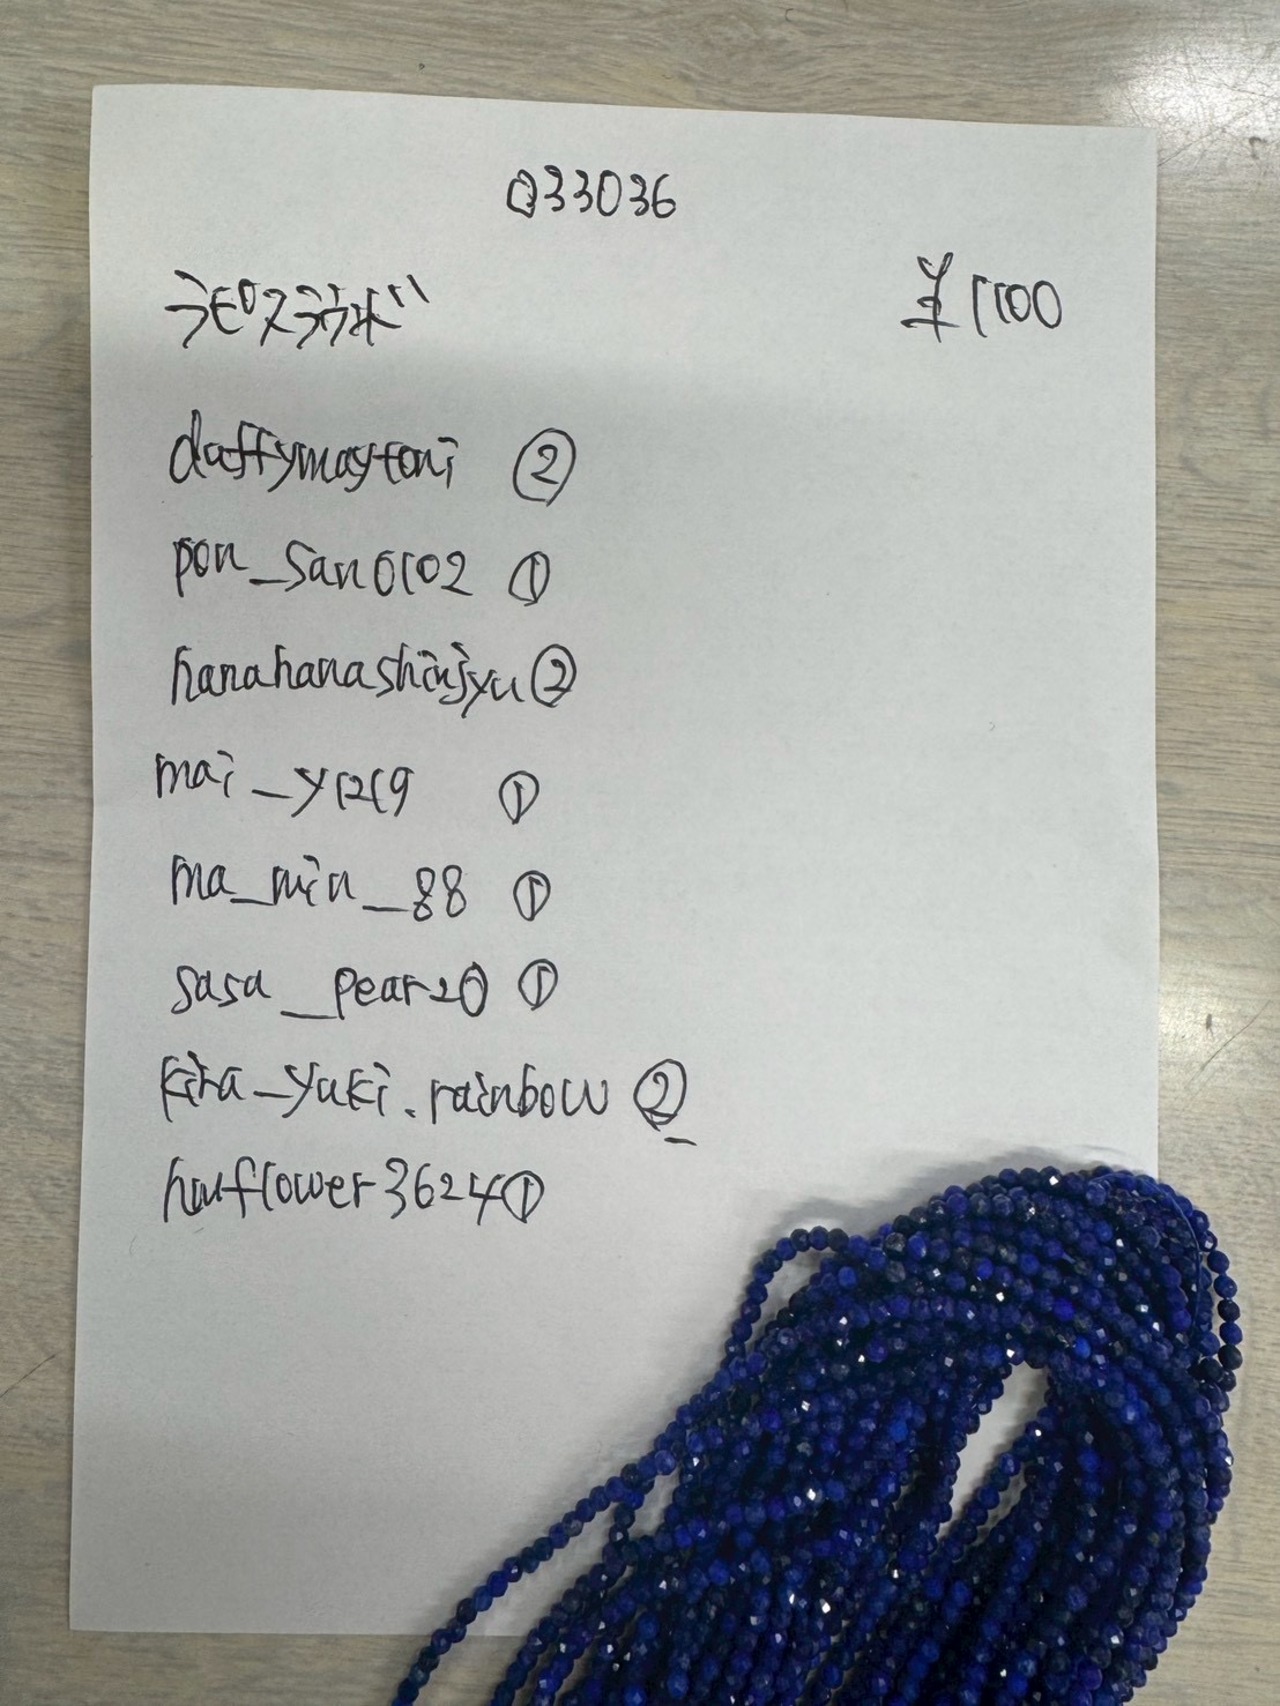 Q33036
ラピスラズリ ¥1100
daffymaytoni ②
pon_san0102 ①
hanahanashinjyu ②
mai_y1219 ①
ma_min_88 ①
sasa_pear20 ①
kira_yuki.rainbow ②
huuflower3624 ①